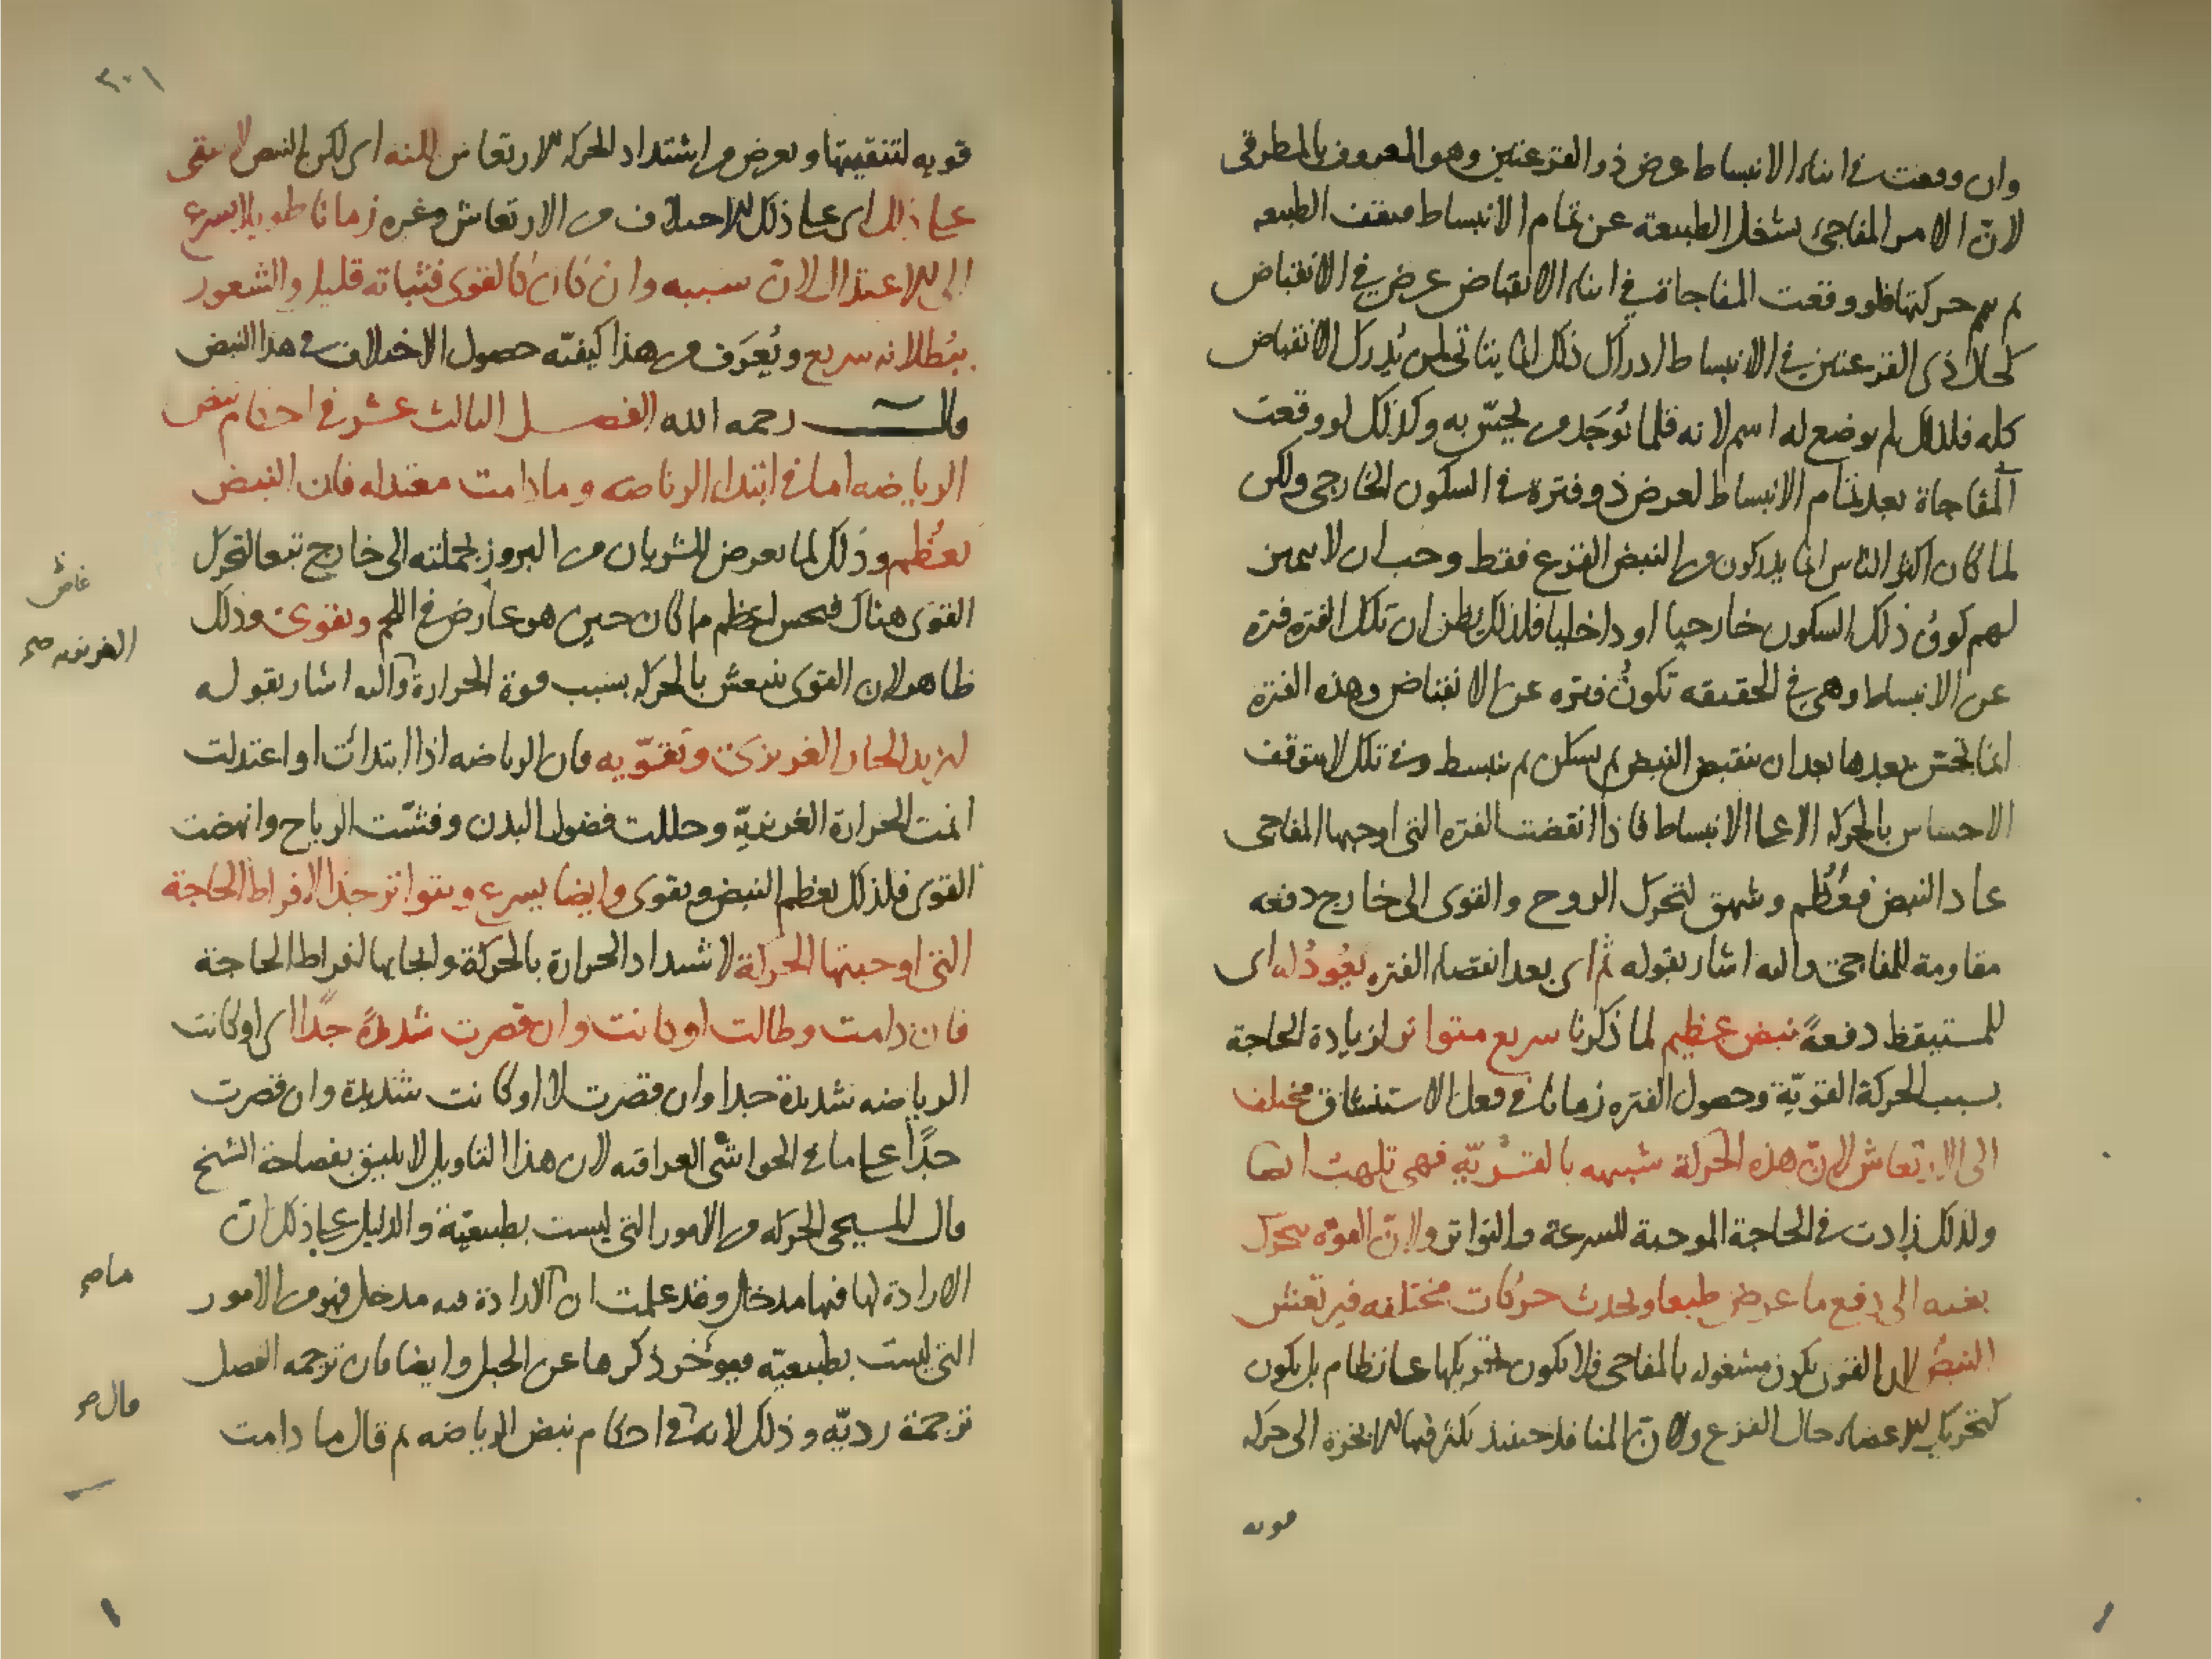 وان وقعت في اثناء الانبساط عرض ذو القرعتين وهو المعروف بالمطرقي
لانّ الامر المفاجئ يشغل الطبيعة عن تمام الانبساط فيقف الطبيعه
ثم يتم حركتها فلو وقعت المفاجاة في اثناء الانقباض عرض في الانقباض
كحال ذي القرعتين في الانبساط ادراك ذلك انما يتاتى لمن يُدرك الانقباض
كله فلذلك لم يوضع له اسم لانه قلما يُوجَد من يحسّ به وكذلك لو وقعت
المفاجاة بعد تمام الانبساط لعرض ذو فترة في السكون الخارجي ولكن
لما كان اكثر الناس انما يدركون من النبض القرع فقط وجب ان لا يتميز
لهم كون ذلك السكون خارجيا او داخليا فلذلك يظن ان تلك الفتره فتره
عن الانبساط وهي في الحقيقه تكونُ فتره عن الانقباض وهذه الفتره
انما تحسّ بعدها بعد ان ينقبض النبض ثم يسكن ثم ينبسط وفي تلك لا يتوقف
الاحساس بالحركه الا على الانبساط فاذا انقضت الفتره التي اوجبها المفاجي
عاد النبض فعَظُم وشهق لتحرك الروح والقوى الى خارج دفعه
مقاومة للمفاجئ واليه اشار بقوله ثم اي بعد انقضاء الفتره يعُودُ له اي
للمستيقظ دفعةً نبض عظيم لما ذكرنا سريع متواتر لزيادة الحاجة
بسبب الحركة القويّة وحصول الفتره زمانا في فعل الاستنشاق مختلف
الى الارتعاش لانّ هذه الحركة شبيهه بالقسْريّه فهي تلهب ايضا
ولذلك زادت في الحاجة الموجبة للسرعة والتواتر ولانّ القوّه تتحرك
بغته الى دفع ما عرض طبعا وتحدث حركات مختلفه فيرتعش
النبض لان القوى يكون مشغوله بالمفاجي فلا يكون تحريكها على نظام بل يكون
كتحريك الاعضاء حال الفزع ولانّ المنافذ حينئذ يكثر فيها الابخره الى حركه
قويه
٢٠١
قويه لتنقيتها ويعرض من اشتداد الحركه الارتعاش للنبه اي لكن النبض لا يبقى
على ذلك اي على ذلك الاختلاف من الارتعاش وغيره زمانا طويلا بل يسرع
الى الاعتدال لانّ سببه وان كان كالقوى فثباته قليل والشعور
ببُطلانه سريع ويُعرَف من هذا كيفيّه حصول الاختلاف في هذا النبض
قال رحمه الله الفصل الثالث عشر في احكام نبض
الرياضه اما في ابتداء الرياضه وما دامت معتدله فان النبض
يعظُم وذلك لما يعرض للشريان من البروز بجملته الى خارج تبعا لتحرك
القوى هناك فيحس اعظم مما كان حين هو غارض في اللحم ويقوى وذلك
ظاهر لان القوى ينتعش بالحركه بسبب قوة الحرارة واليه اشار بقوله
لتزيد الحار الغريزيّ وتقوّيه فان الرياضه اذا ابتدأت او اعتدلت
انمت الحرارة الغريزيّه وحللت فضول البدن وفشّت الرياح وانهضت
القوى فلذلك يعظم النبض ويقوى وايضا يسرع ويتواتر جدا لافراط الحاجة
التي اوجبتها الحركة لاشتداد الحرارة بالحركة وايجابها لفرط الحاجة
فان دامت وطالت او كانت وان قصرت شديدةً جدّا اي او كانت
الرياضه شديدة جدا وان قصرت لا او كانت شديدة وان قصرت
جدًّا على ما في الحواشي العراقيه لان هذا التاويل لا يليق بفصاحة الشيخ
قال المسيحي الحركه من الامور التي ليست بطبيعيّة والدليل على ذلك انّ
الارادة لها فيها مدخل وقد علمت ان الارادة فيه مدخل فهو من الامور
التي ليست بطبيعيّه فيؤخر ذكرها عن الحبل وايضا فان ترجمه الفصل
ترجمة رديّه وذلك لانه في احكام نبض الرياضه ثم قال ما دامت
غائص
الغريزيه صح
ما صح
قال صح